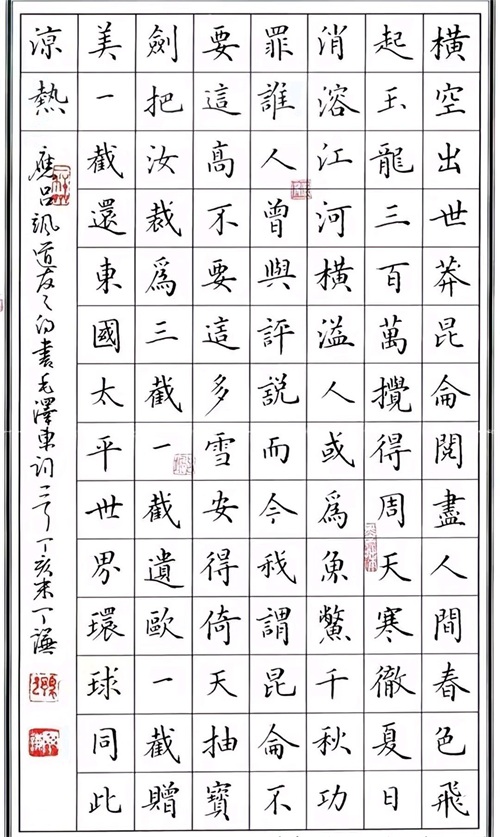 橫空出世莽昆侖閱盡人間春色飛
起玉龍三百萬攪得周天寒徹夏日
消溶江河橫溢人或爲魚鱉千秋功
罪誰人曾與評說而今我謂昆侖不
要這高不要這多雪安得倚天抽寶
劍把汝裁爲三截一截遺歐一截贈
美一截還東國太平世界環球同此
涼熱
應呂颯道友之約書毛澤東詞丁亥末丁謙